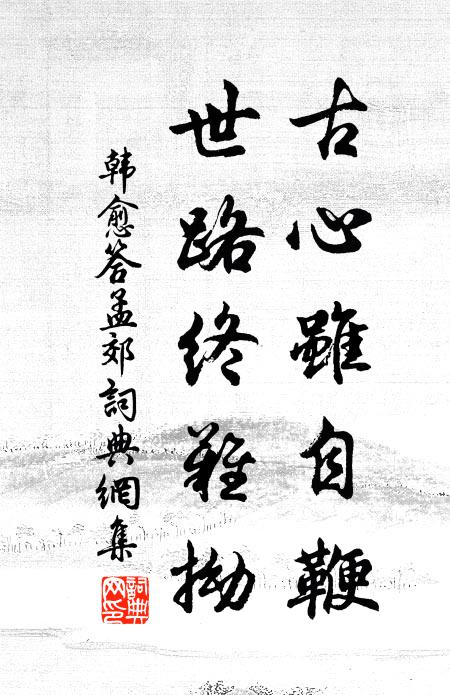 古心雖自鞭
世路终難拗
韩愈答孟郊詞典網集
詞典网印